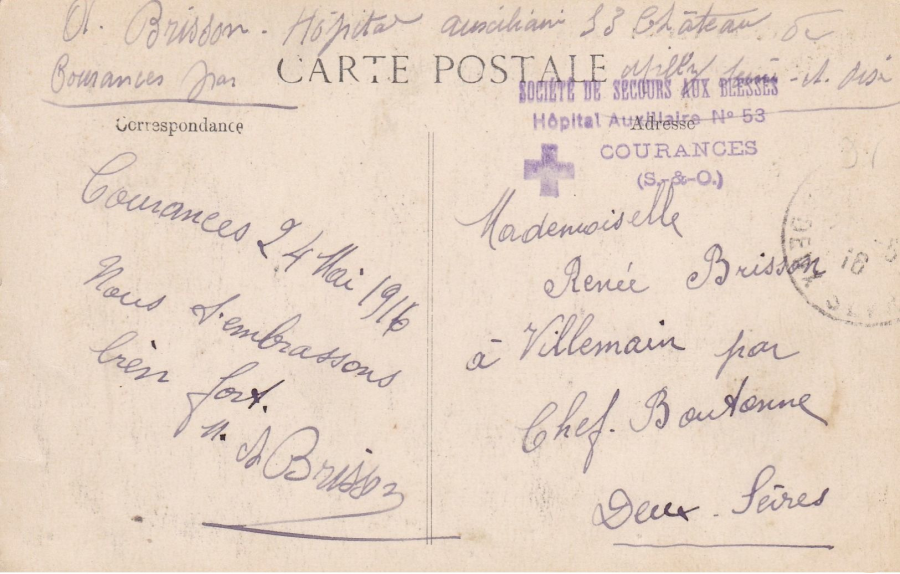 A. Brisson. Hôpital auxiliaire 53 Château de
Courances par Milly Seine-et-Oise
CARTE POSTALE
SOCIÉTÉ DE SECOURS AUX BLESSÉS
Hôpital Auxiliaire No 53
COURANCES
(S.-&-O.)
Correspondance
Adresse
Courances 24 Mai 1916
Nous t'embrassons
bien fort.
A Brisson
Mademoiselle
Renée Brisson
à Villemain par
Chef. Boutonne
Deux-Sèvres